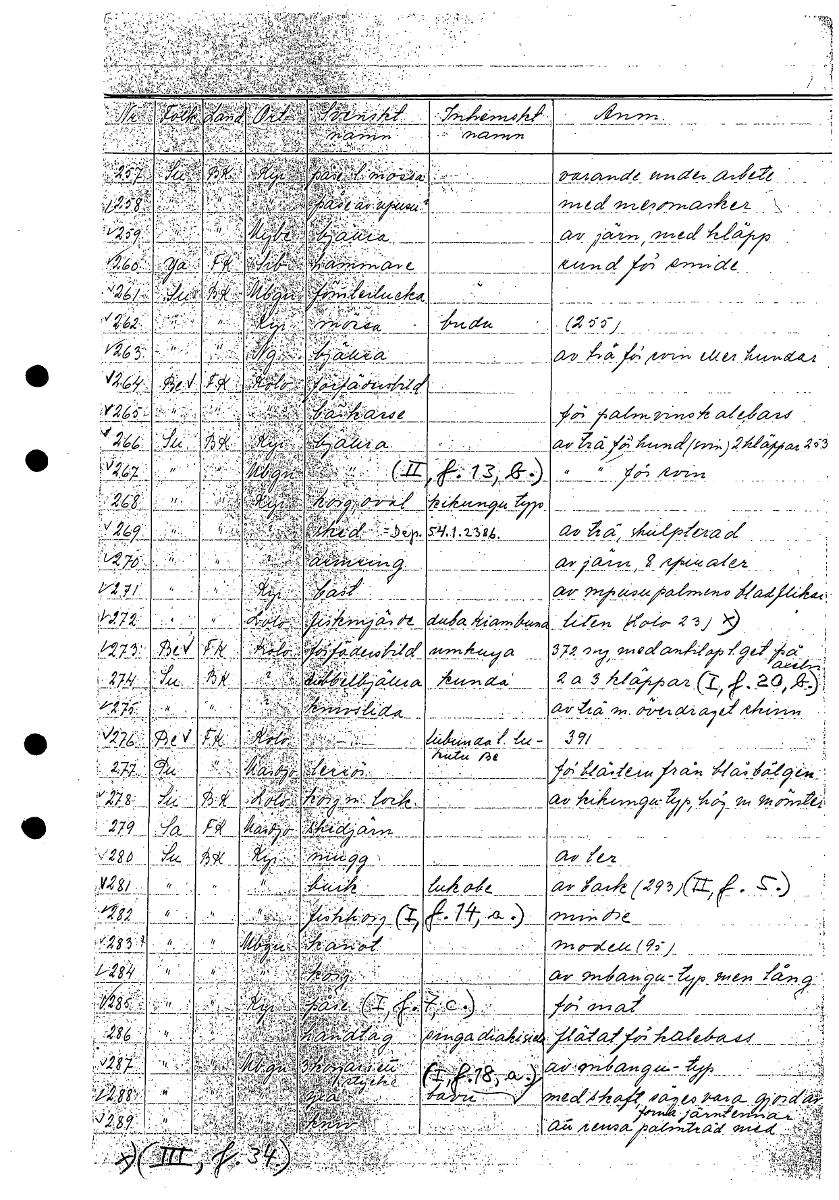 Nr Folk Land Ort Svenskt namn Inhemskt namn Anm.
257 Su BK Kyi påse l. mössa varande under arbete
258 " " " påse av mpusu? med mesomasker
259 " " Mybe bjällra av järn, med kläpp
260 Ya FK Sib hammare rund för smide
261 Su BK Mbgu fönsterlucka
262 " " Kyi mössa budu (255)
263 " " Ng bjällra av trä för svin eller hundar
264 Be FK Kolo förfädersbild
265 " " " bälkarse för palmvinskalebass
266 Su BK Kyi bjällra av trä för hund (svin) 2 kläppar 253
267 " " Mbgu " (II, f. 13, b.) " " för svin
268 " " Kyi korg, oval kikungu typ
269 " " " sked =Dep. 54.1.2386. av trä, skulpterad
270 " " " armring av järn, 8 spiraler
271 " " Kyi bast av mpusupalmens bladflikar
272 " " Lolo fisknyärde duba kiambuna liten (Lolo 23) x)
273 Be FK Kolo förfädersbild umkuya 372 ny, med antilop l. get på axeln
274 Su BK " dubbelbjällra kunda 2 a 3 kläppar (I, f. 20, b.)
275 " " " knivslida av trä m. överdraget skinn
276 Be FK Kolo - lubunda l. lukutu Be 391
277 " Masojo lerrör för blästern från blåsbälgen
278 Su BK Lolo korg m. lock av kikungu-typ, hög m mönster
279 Sa FK Masojo skedjärn
280 Su BK Kyi mugg av ler
281 " " " burk lukobe av bark (293) (II, f. 5.)
282 " " " fiskkorg (I, f. 14, a.) mindre
283 " " Mbgu kanot modell (95)
284 " " " korg av mbangu-typ men lång
285 " " Kyi påse (I, f. 7 c.) för mat
286 " " " handtag flätat för kalebass
287 " " Mbgu 3 korgar i ett stycke (I, f. 18, a.) av mbangu-typ
288 " " " yxa bavu med skaft, säges vara gjord av forna järntennar
289 " " " kniv att rensa palmträd med
x) (III, f. 34.)